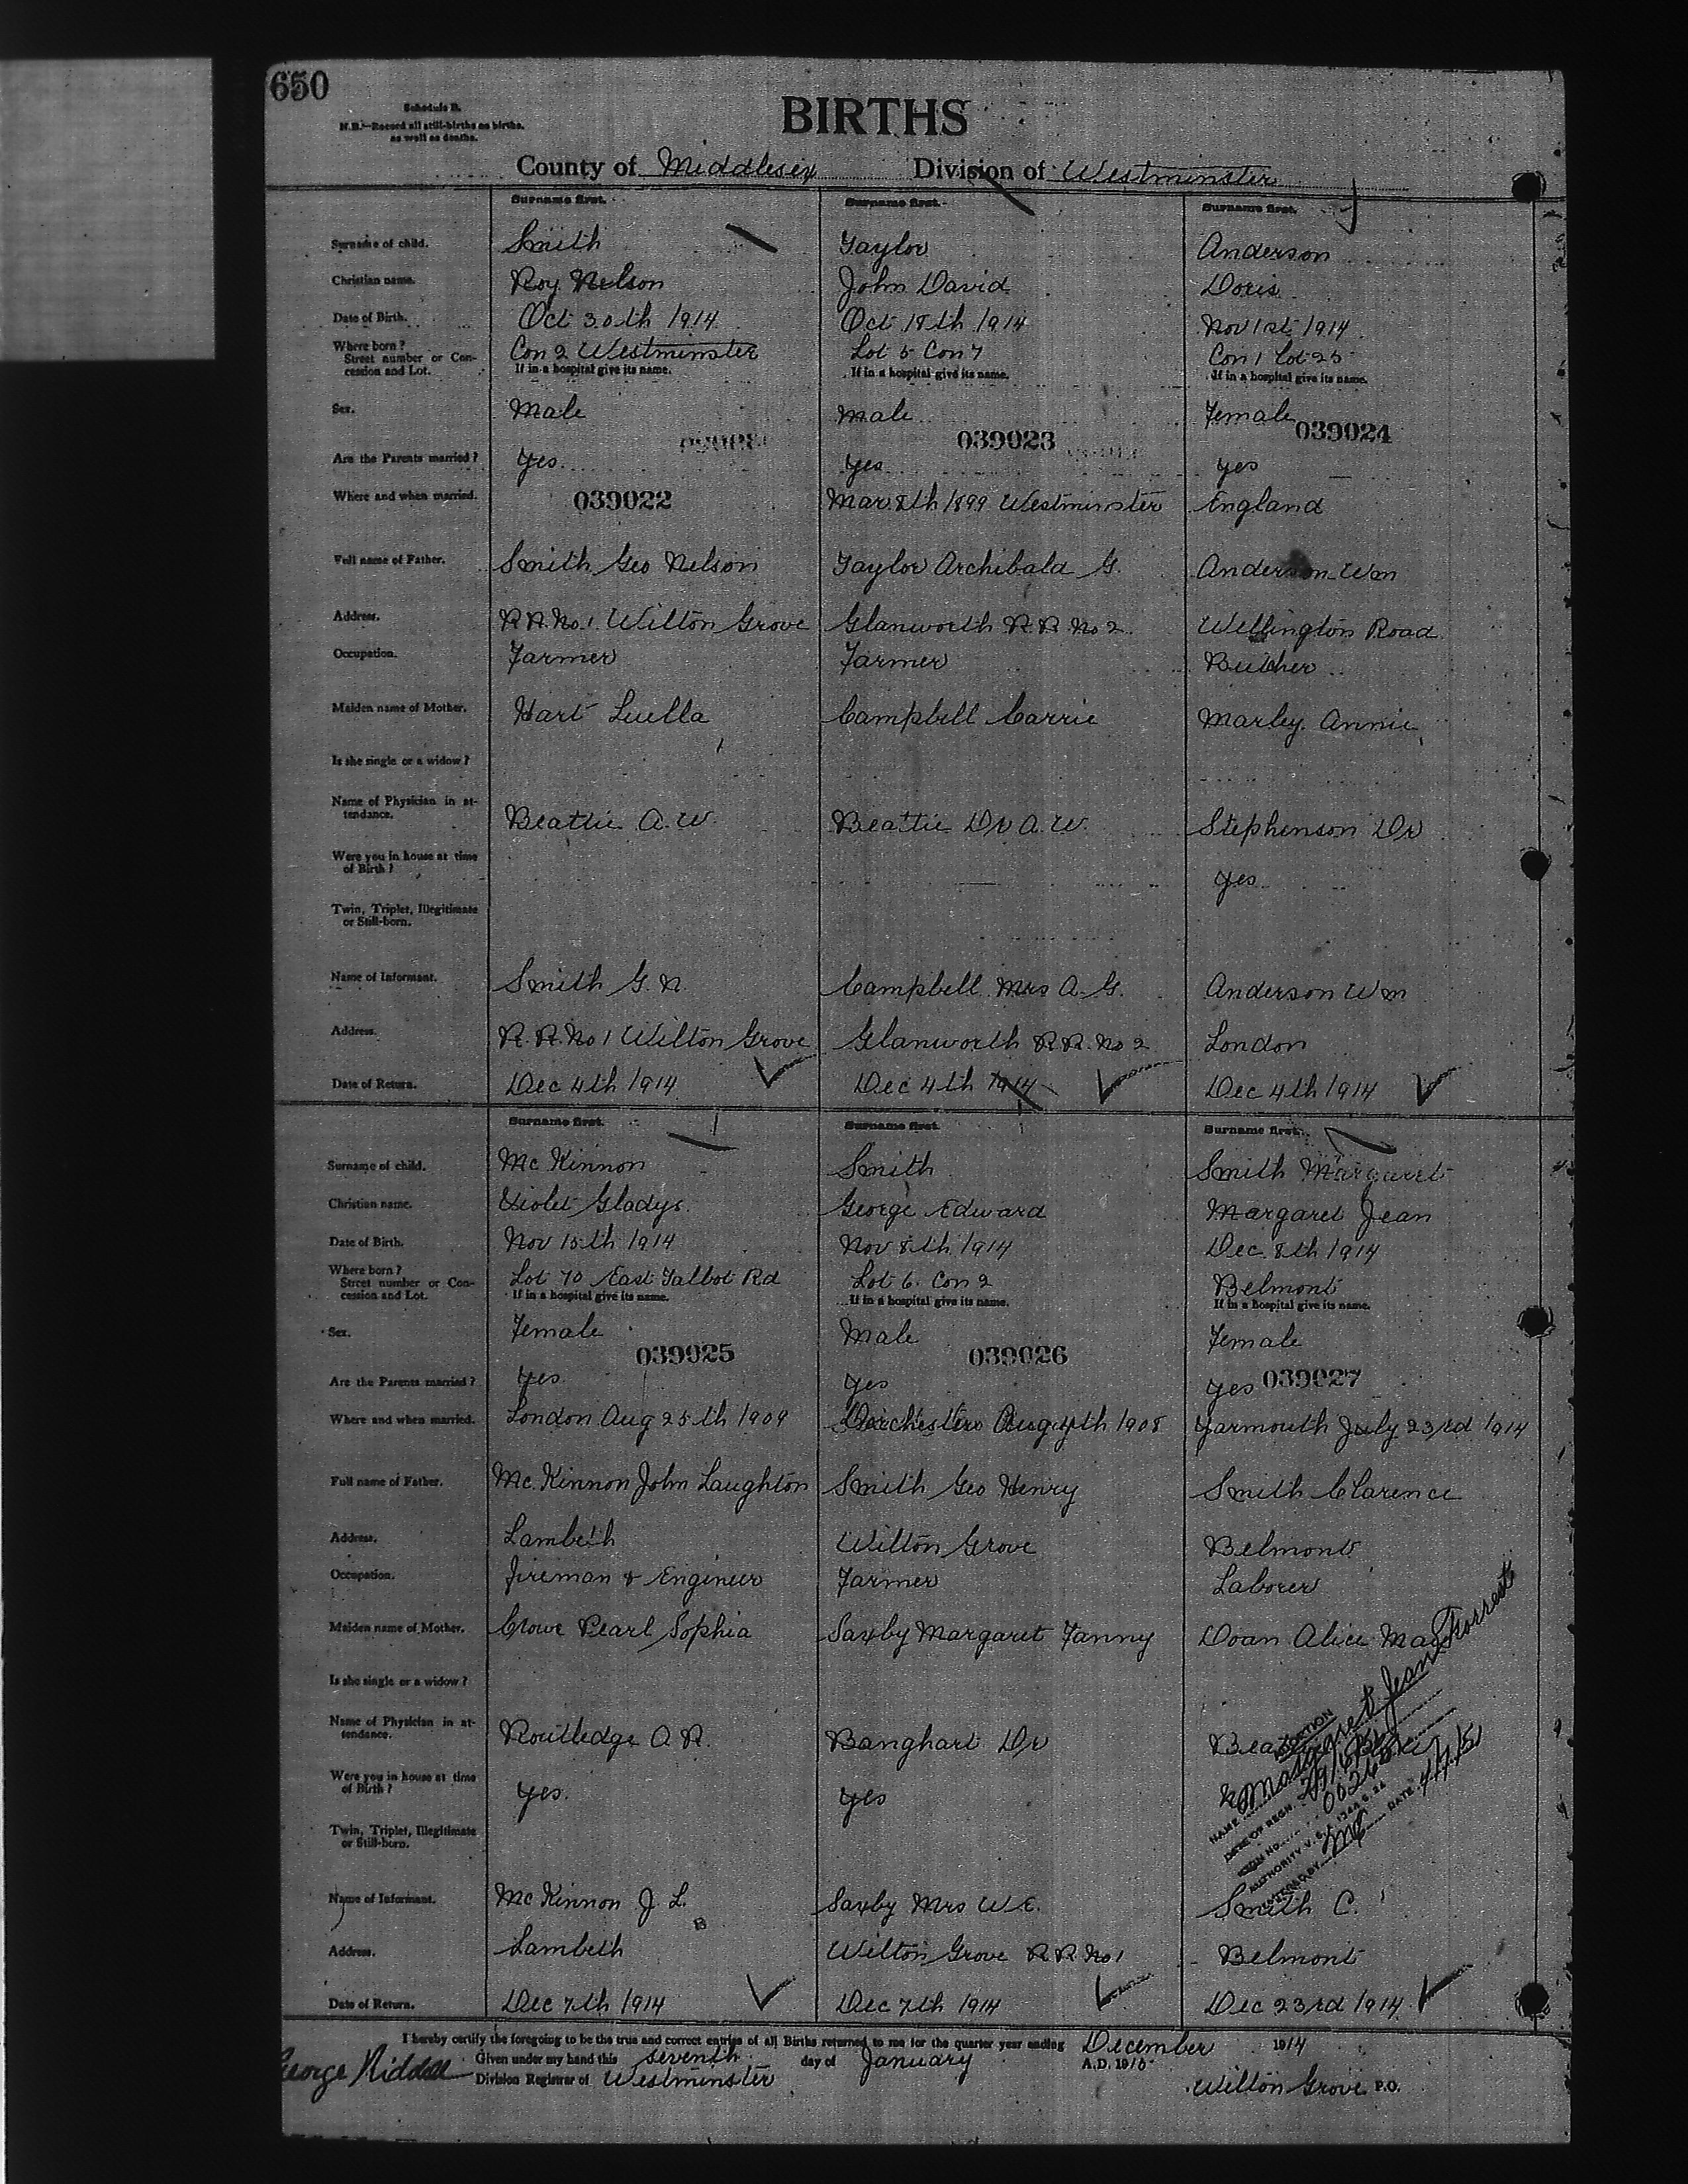 650
Schedule B.
N.B.—Record all still-births as births,
as well as deaths.
BIRTHS
County of Middlesex Division of Westminster
Surname first. Surname first. Surname first.
Surname of child. Smith Taylor Anderson
Christian name. Roy Nelson John David Doris
Date of Birth. Oct 30th 1914 Oct 18th 1914 Nov 1st 1914
Where born? Con 2 Westminster Lot 5 Con 7 Con 1 Lot 25
Street number or Con-
cession and Lot. If in a hospital give its name. If in a hospital give its name. If in a hospital give its name.
Sex. Male Male Female
039023 039024
Are the Parents married? Yes Yes Yes
Where and when married. 039022 Mar 8th 1899 Westminster England
Full name of Father. Smith Geo Nelson Taylor Archibald G. Anderson Wm
Address. R.R. No. 1 Wilton Grove Glanworth R.R. No 2 Wellington Road
Occupation. Farmer Farmer Butcher
Maiden name of Mother. Hart Luella Campbell Carrie Marley Annie
Is she single or a widow?
Name of Physician in at-
tendance. Beattie A. W. Beattie Dr A. W. Stephenson Dr
Were you in house at time
of Birth? Yes
Twin, Triplet, Illegitimate
or Still-born.
Name of Informant. Smith G. N. Campbell Mrs A. G. Anderson Wm
Address. R. R. No 1 Wilton Grove Glanworth R.R. No 2 London
Date of Return. Dec 4th 1914 Dec 4th 1914 Dec 4th 1914
Surname first. Surname first. Surname first.
Surname of child. Mc Kinnon Smith Smith Margaret
Christian name. Violet Gladys. George Edward Margaret Jean
Date of Birth. Nov 15th 1914 Nov 8th 1914 Dec. 8th 1914
Where born? Lot 70 East Talbot Rd Lot 6. Con 2 Belmont
Street number or Con-
cession and Lot. If in a hospital give its name. If in a hospital give its name. If in a hospital give its name.
Sex. Female Male Female
039025 039026 039027
Are the Parents married? Yes Yes Yes
Where and when married. London Aug 25th 1909 Dorchester Aug 4th 1908 Yarmouth July 23rd 1914
Full name of Father. Mc. Kinnon John Laughton Smith Geo Henry Smith Clarence
Address. Lambeth Wilton Grove Belmont
Occupation. Fireman & Engineer Farmer Laborer
Maiden name of Mother. Crowe Pearl Sophia Saxby Margaret Fanny Doan Alice May
Is she single or a widow?
Name of Physician in at-
tendance. Routledge A. R. Banghart Dr
Were you in house at time
of Birth? Yes. Yes
Twin, Triplet, Illegitimate
or Still-born.
ADOPTION
NAME Margaret Jean Forrest
DATE OF REGN.
AUTHORITY V. S.
DATE
Name of Informant. Mc Kinnon J. L. Saxby Mrs W. E. Smith C.
Address. Lambeth Wilton Grove R R No 1 Belmont
Date of Return. Dec 7th 1914 Dec 7th 1914 Dec 23rd 1914
I hereby certify the foregoing to be the true and correct entries of all Births returned to me for the quarter year ending December 1914
Given under my hand this seventh day of January A.D. 1915
George Riddell Division Registrar of Westminster Wilton Grove P.O.